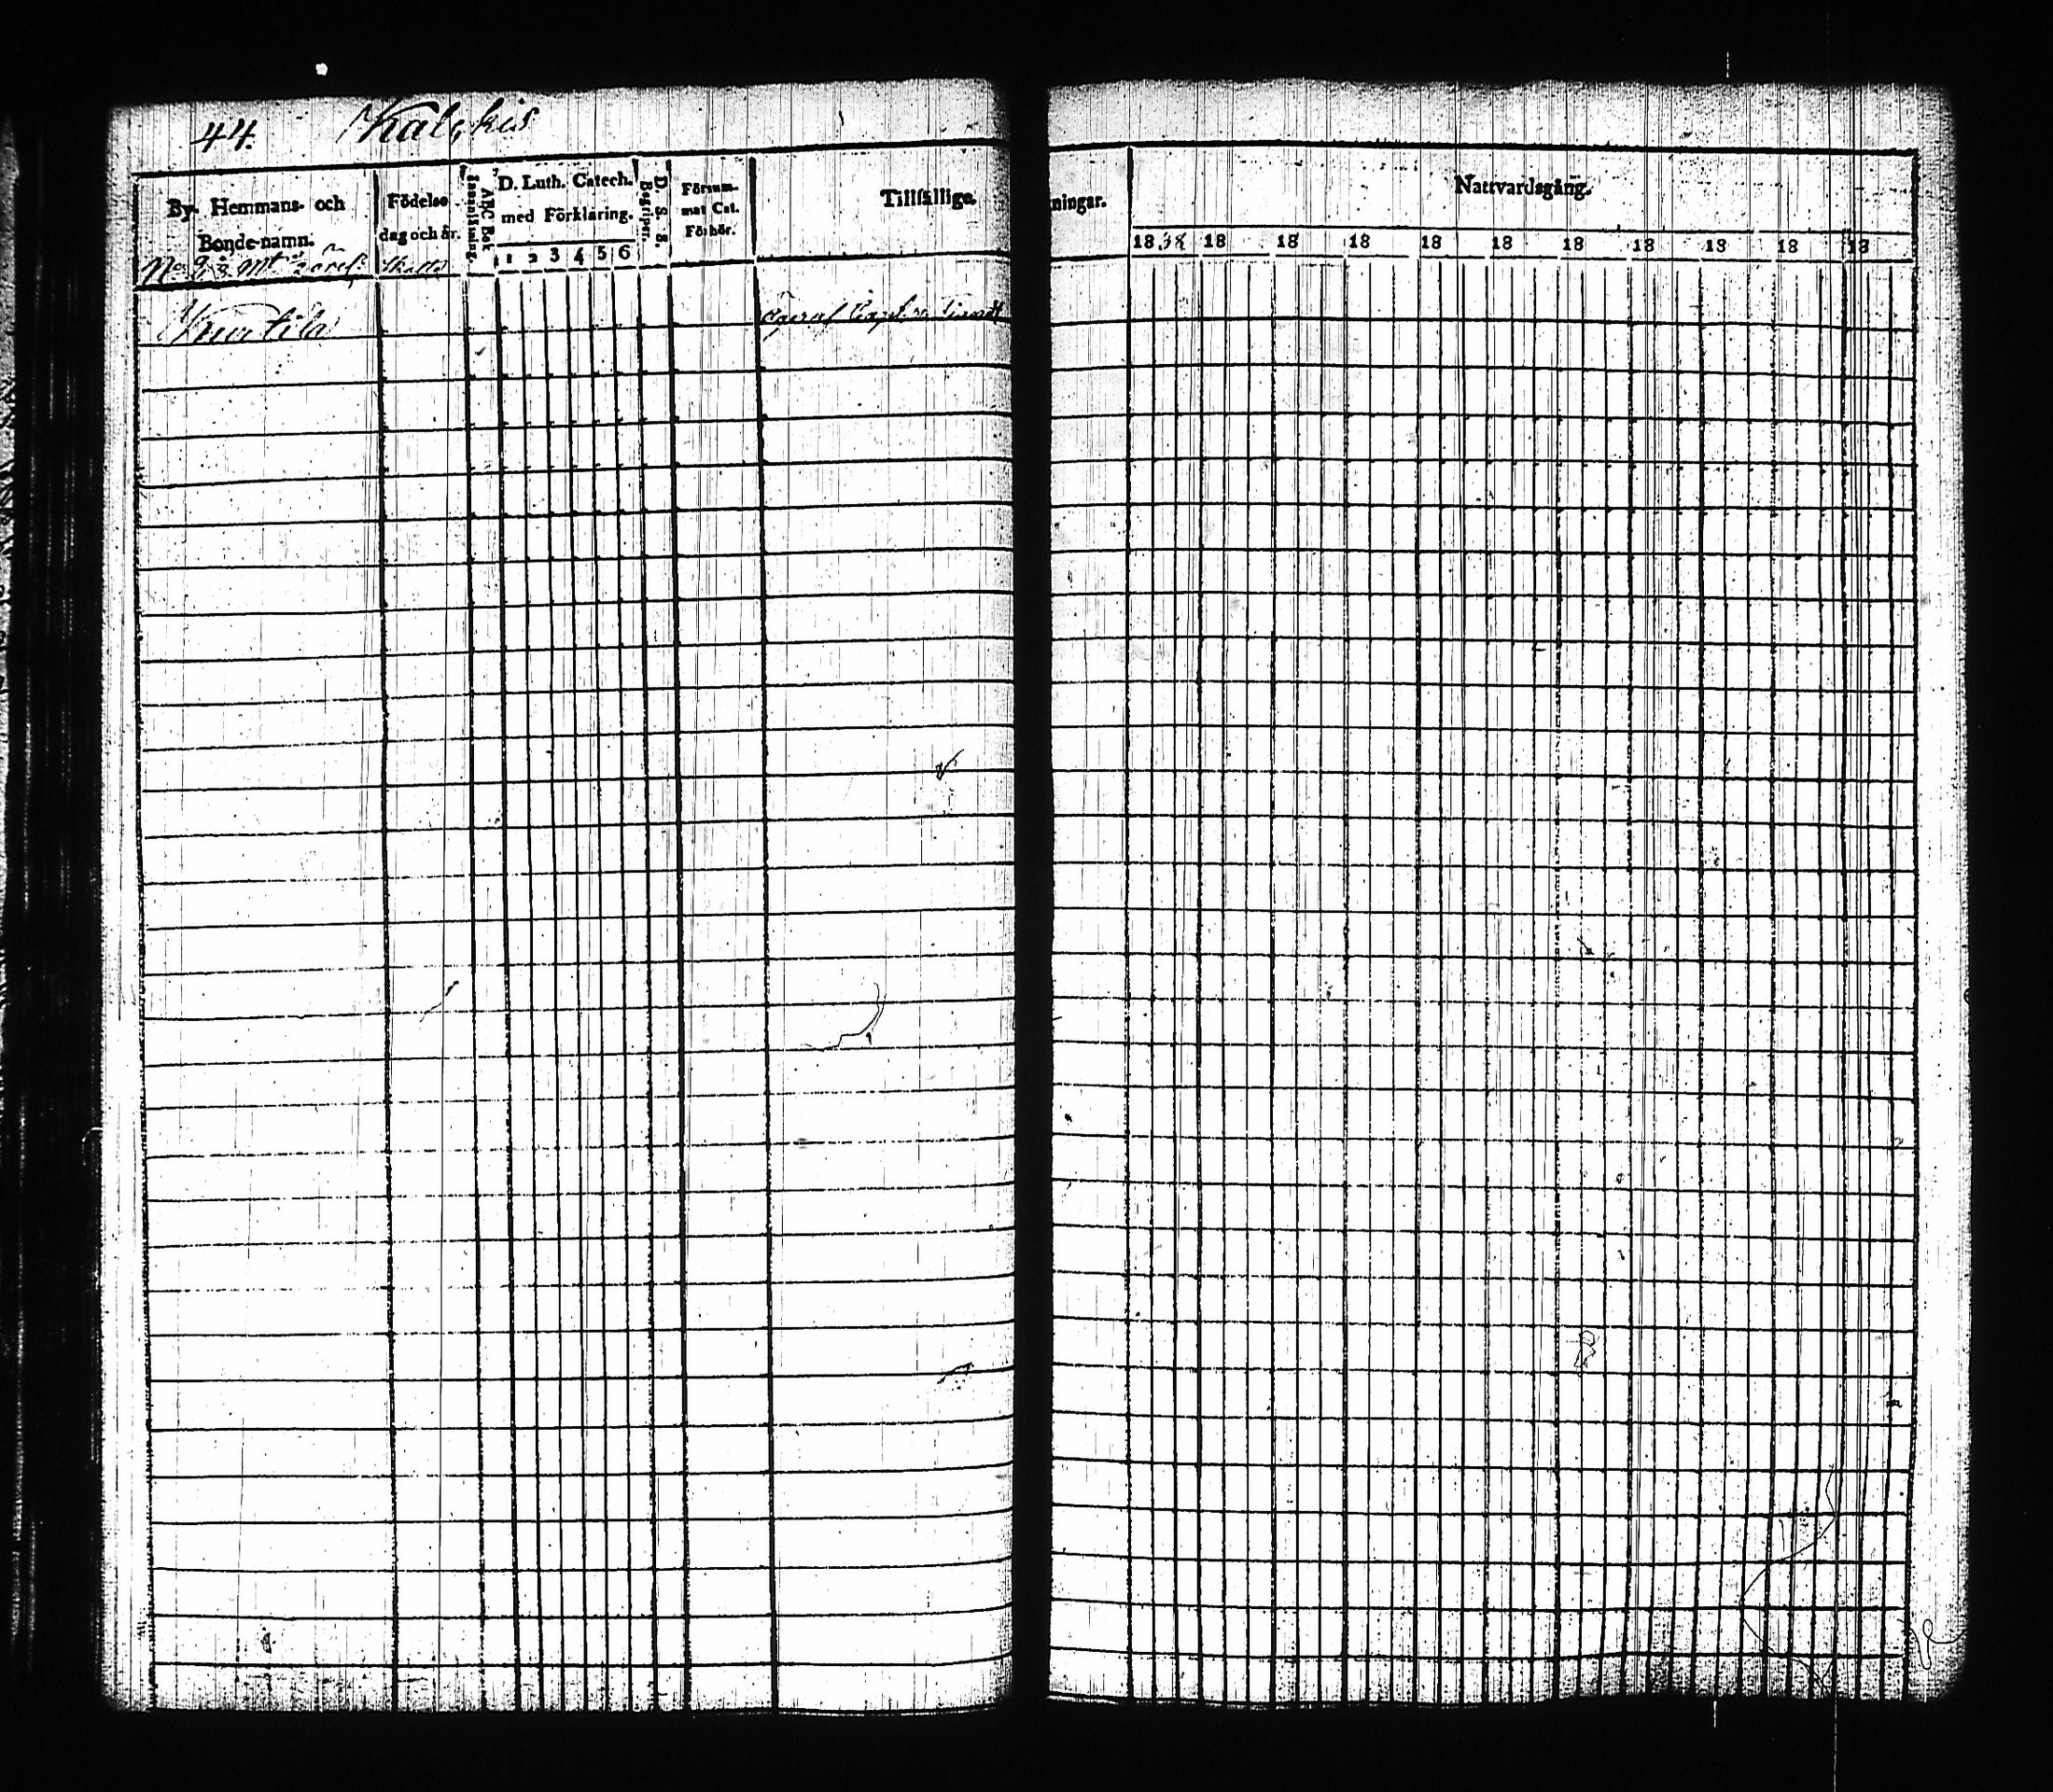 44.
By- Hemmans- och
Bonde-namn.
Födelse
dag och år.
ABC Bok
Innanläsning.
D. Luth. Catech.
med Förklaring.
1 2 3 4 5 6
D. S. S.
Begriper.
Försum-
mat Cat.
Förhör.
Tillfällige
ningar.
Nattvardsgång.
1838 18 18 18 18 18 18 18 18 18 18